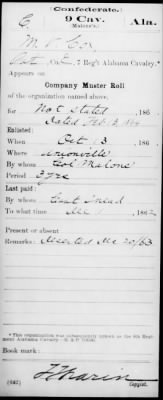 Confederate.
C 9 Cav. Ala.
(Malone's.)
M. V. Cox
Pvt, Co. , 7 Reg't Alabama Cavalry.*
Appears on
Company Muster Roll
of the organization named above,
for Not Stated , 186
Dated Feb. 13, 1864
Enlisted:
When Oct. 13 , 186
Where Unionville
By whom Col Malone
Period 3 yrs
Last paid:
By whom Capt
To what time , 1862
Present or absent
Remarks: Deserted 20/63
*This organization was subsequently known as the 9th Regiment Alabama Cavalry.
Book mark:
(642) Copyist.